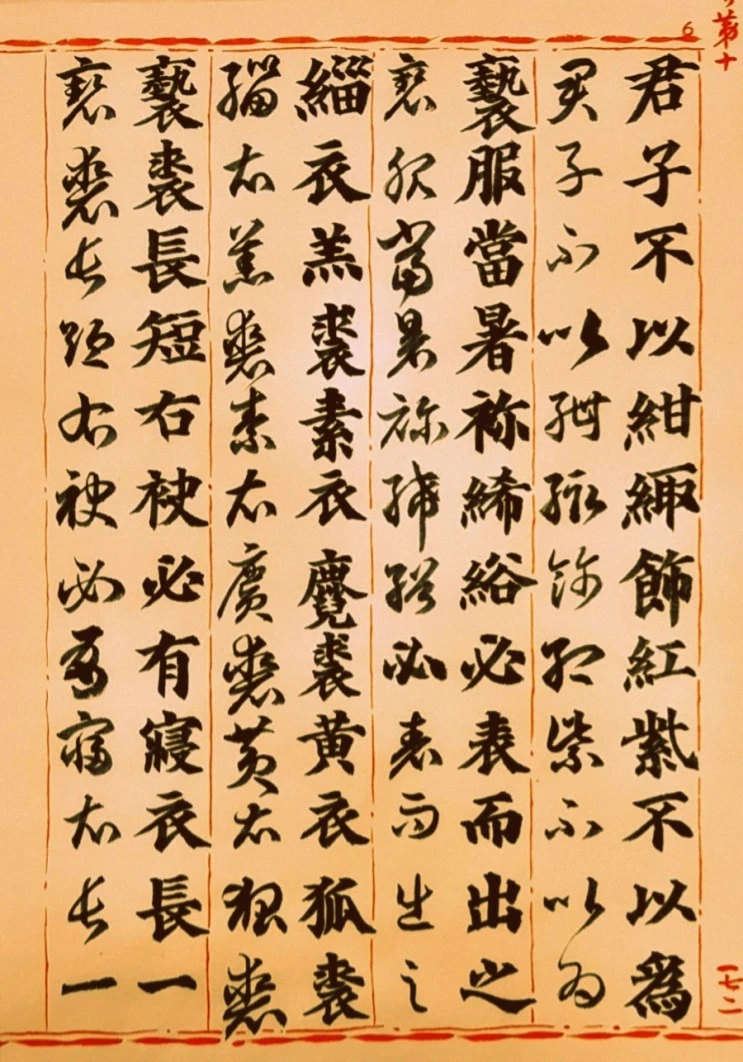 第十
6
君子不以紺緅飾紅紫不以爲
君子不以紺緅飾紅紫不以爲
褻服當暑袗絺綌必表而出之
褻服當暑袗絺綌必表而出之
緇衣羔裘素衣麑裘黃衣狐裘
緇衣羔裘素衣麑裘黃衣狐裘
褻裘長短右袂必有寢衣長一
褻裘長短右袂必有寢衣長一
一七二